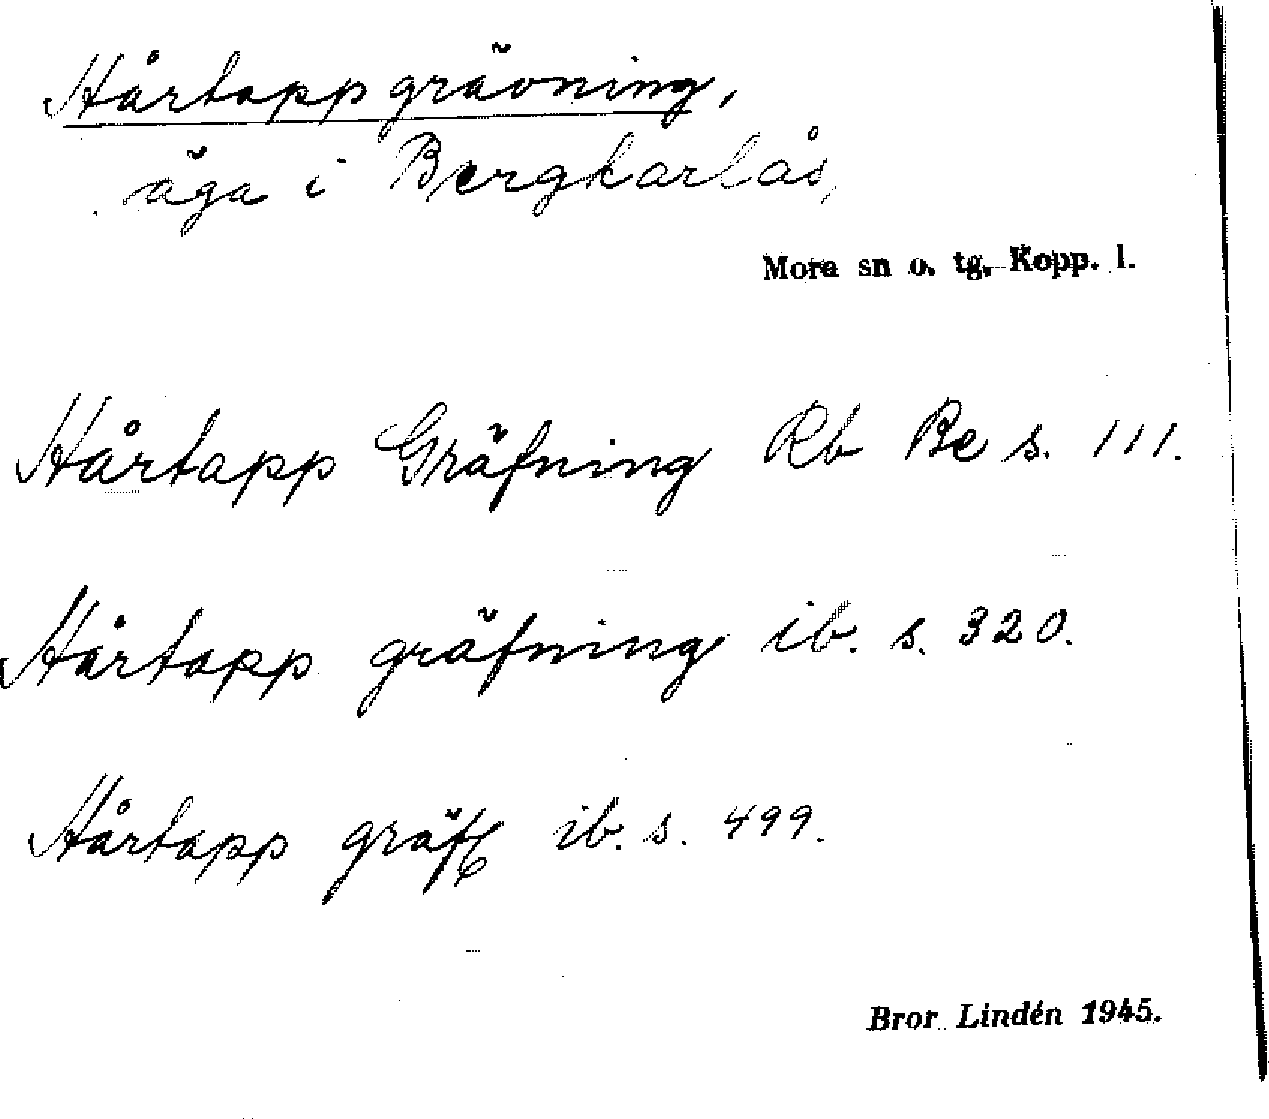 Hårtappgrävning,
äga i Bergkarlås,
Mora sn o. tg. Kopp. l.
Hårtapp Gräfning Rb Be s. 111.
Hårtapp gräfning ib. s. 320.
Hårtapp gräf ib. s. 499.
Bror Lindén 1945.